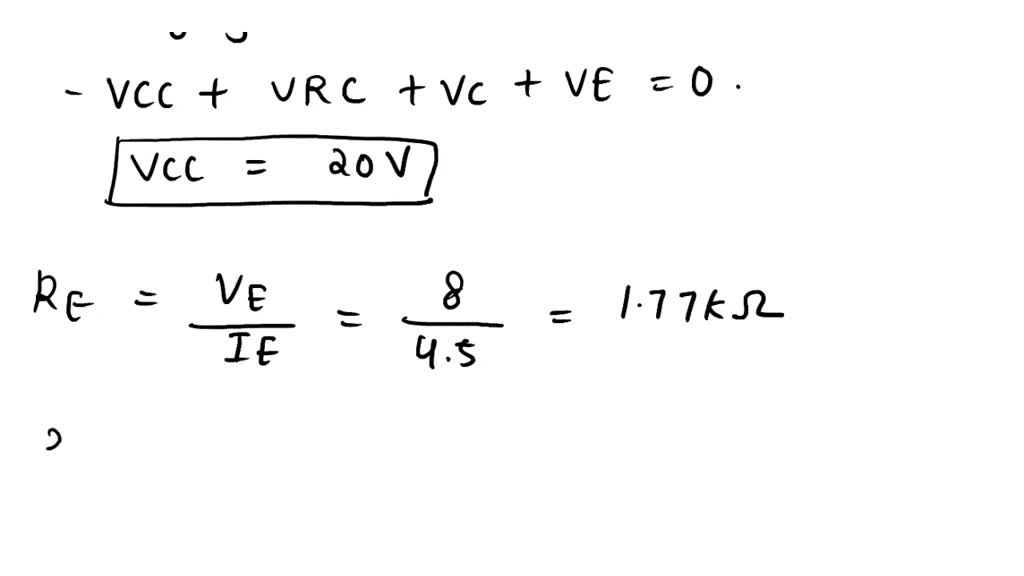 - VCC + VRC + VC + VE = 0.
VCC = 20V
RE = VE / IE = 8 / 4.5 = 1.77kΩ